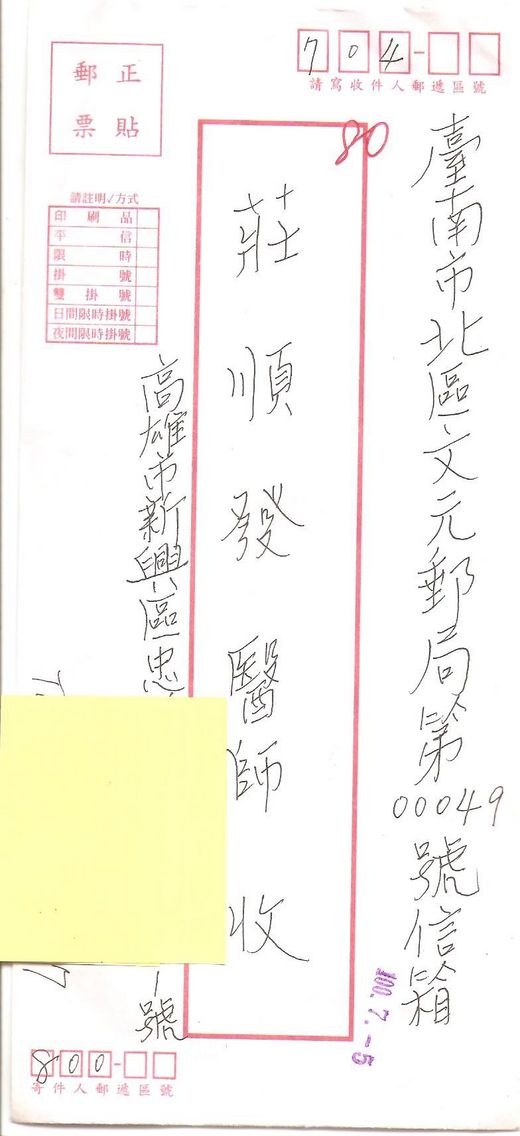 704
請寫收件人郵遞區號
80
臺南市北區文元郵局第00049號信箱
莊順發醫師 收
正貼
郵票
請註明✓方式
印刷品
平信
限時
掛號
雙掛號
日間限時掛號
夜間限時掛號
高雄市新興區忠
號
100.7.-5
800
寄件人郵遞區號